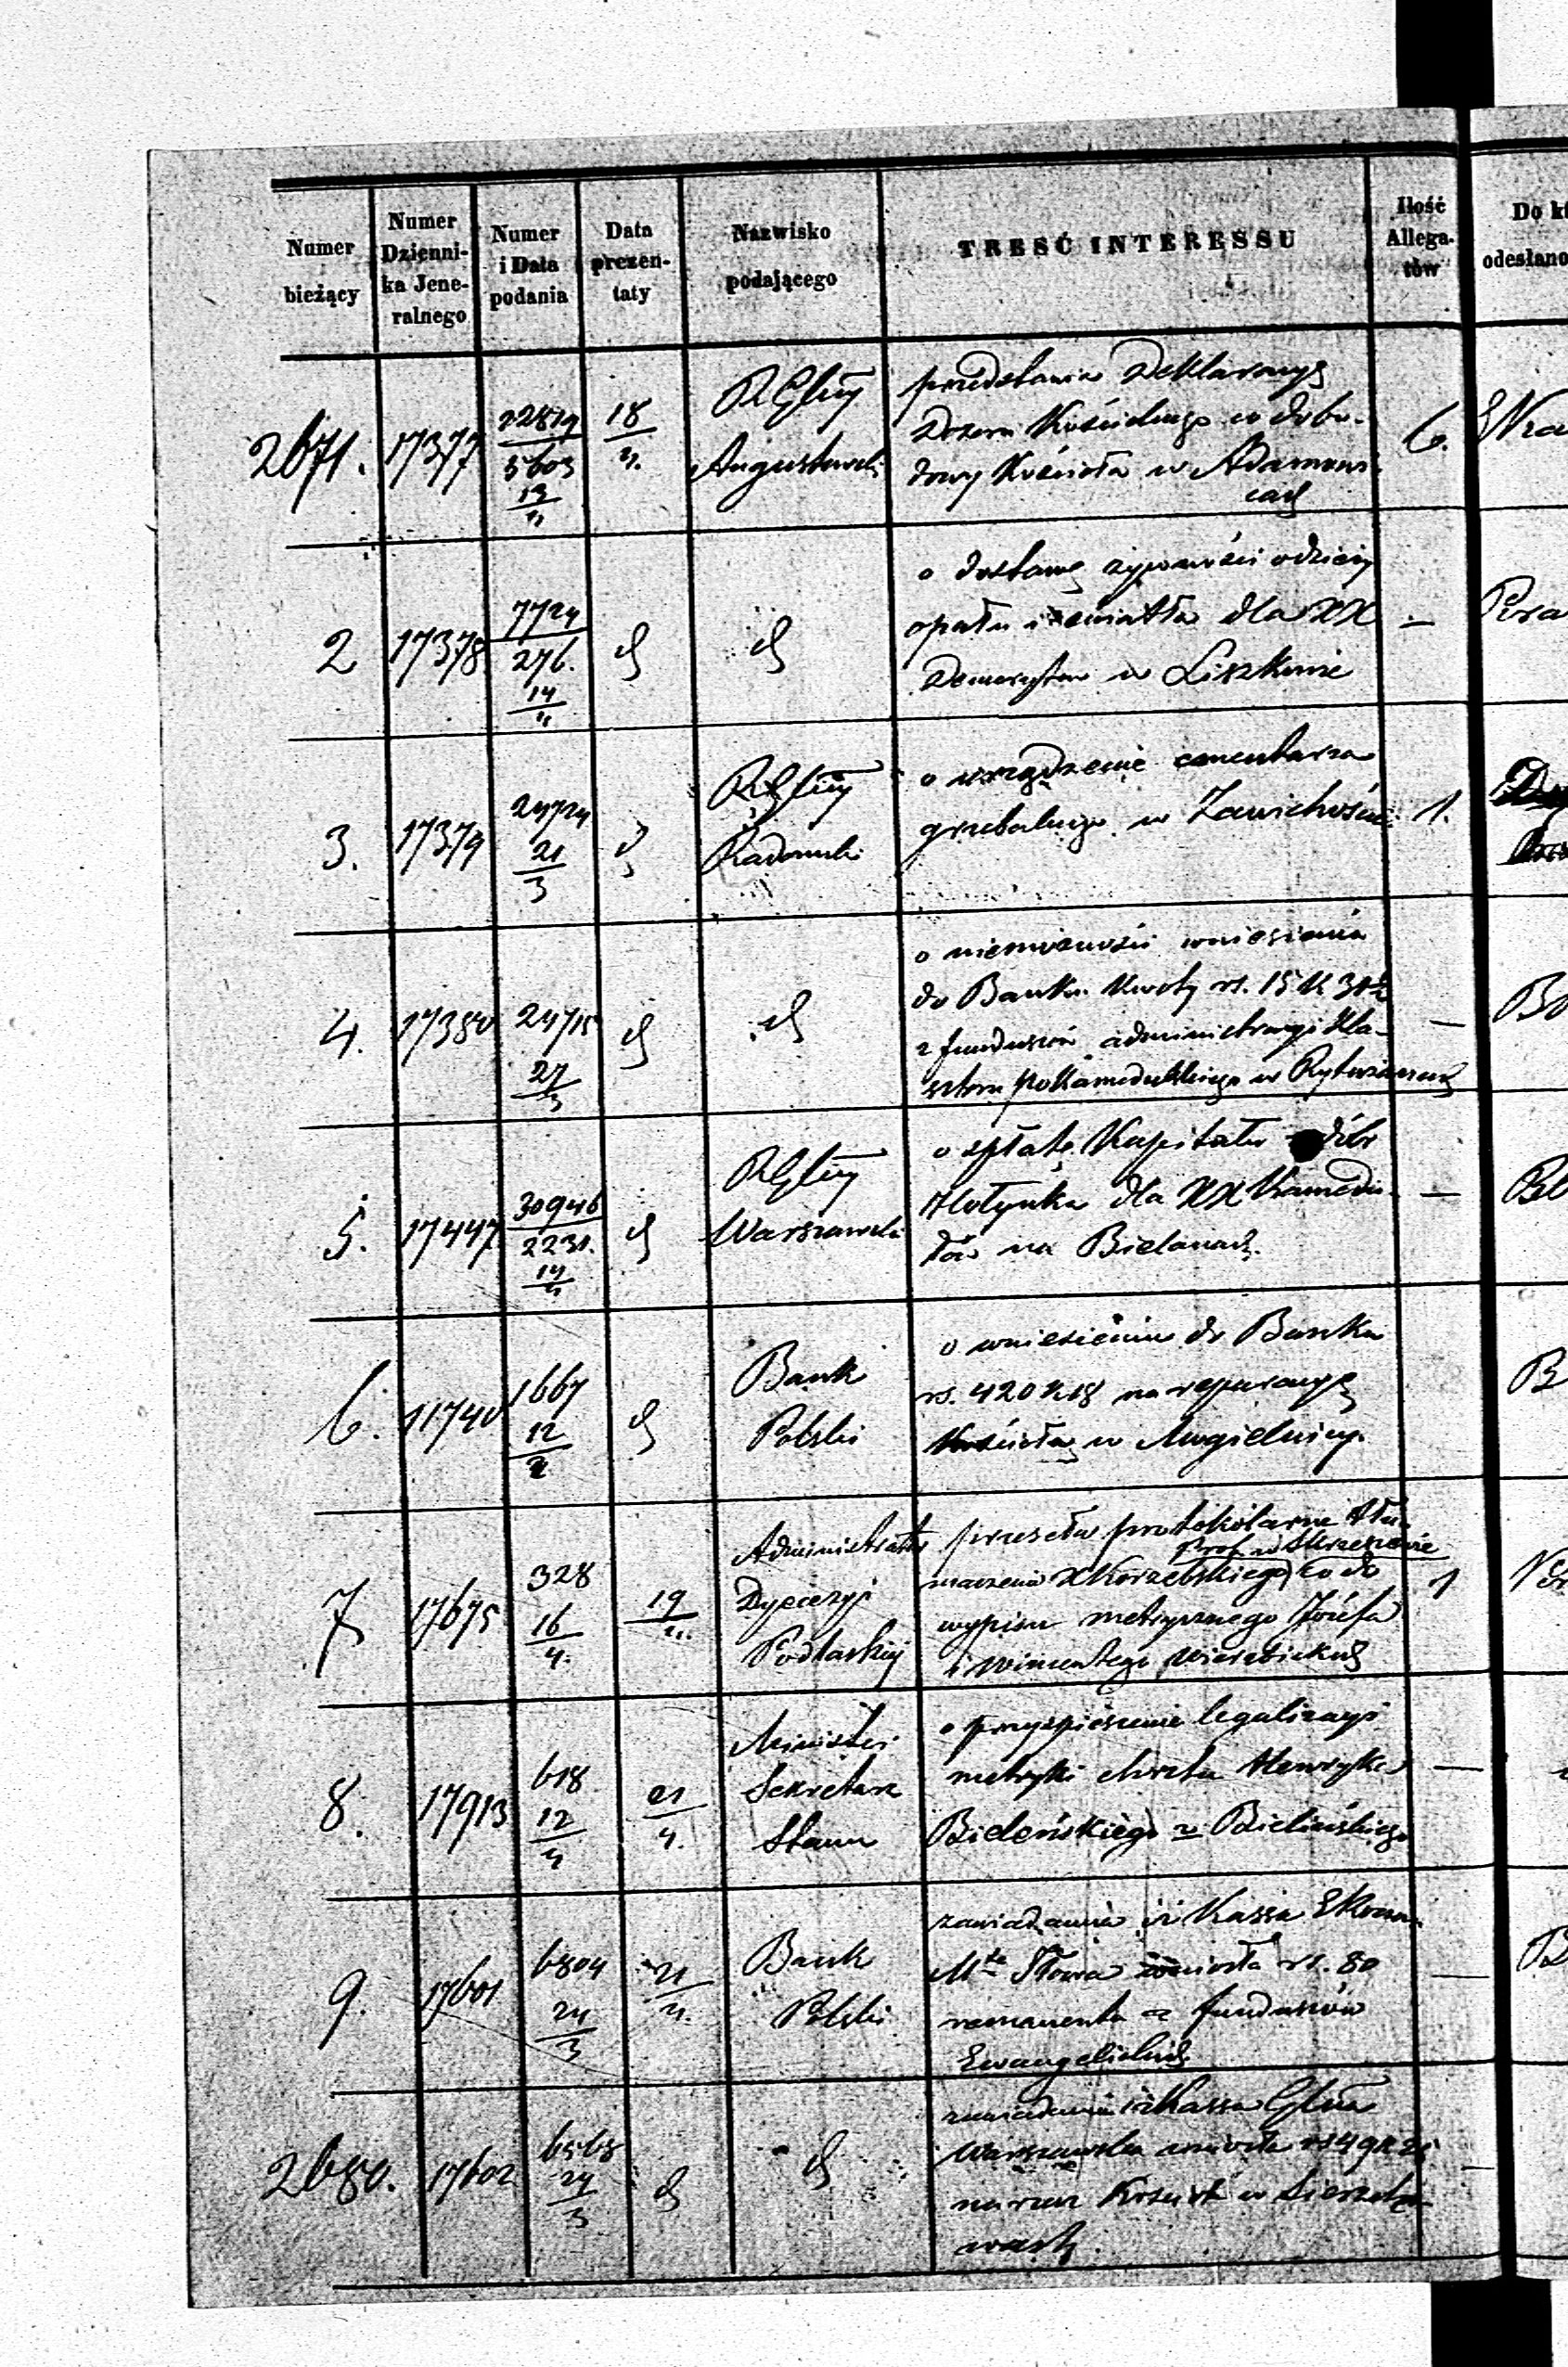 Numer bieżący
Numer Dzienni- ka Jene- ralnego
Numer i Data podania
Data prezen- taty
Nazwisko podającego
TREŚĆ INTERESSU
Ilość Allega- tów
Do kt
odesłano
2671. 17377 22819 5603 13/4 18/4
Augustowski
przedstawia Deklaracyą
Dozoru Kościelnego co do bu-
dowy Kościoła w Adamowi-
cach
6.
2 17378 7724 276. 14/4 d d
o dostawę żywności odzieży
opału i światła dla XX
Demerytów w Liszkowie
—
3. 17379 24724 21/3 d
Radomski
o urządzenie cmentarza
grzebalnego w Zawichoście
1.
4. 17380 24715 27/3 d d
o niemożności wniesienia
do Banku Kwoty rs. 15 K
z funduszów administracyi Kla-
sztoru poKamedulskiego w Rytwianach
—
5. 17447 30946 2231. 14/4 d
Warszawski
o spłatę Kapitału dóbr
dla XX Kamedu-
łów na Bielanach.
—
6. 11740 1667 12/2 d
Bank
Polski
o wniesieniu do Banku
rs. 420 K 18 na reparacyę
Kościoła w Mogielnicy.
7 17675 328 16/4. 19/4.
Administrator
Dyecezyi
Podlaskiej
przesyła protokólarne tłu-
Prob. w Skrzeszewie
maczenie X Korzebskiego co do
wypisu metrycznego Józefa
i Wincentego Wierzbickich
1
8. 17913 618 12/4 21/4.
Minister
Sekretarz
Stanu
o przyspieszenie legalizacyi
metryki chrztu Henryka
Bieleńskiego v Bielińskiego
—
9. 17601 6804 24/3 21/4.
Bank
Polski
zawiadamia iż Kassa Ekonom.
Mta wniosła rs. 80
remanentu z funduszów
Ewangelickich
—
2680. 17602 6568 24/3 d d
zawiadamia iż Kassa Głwa
Warszawska wniosła rs 49 K
na rzecz
wach.